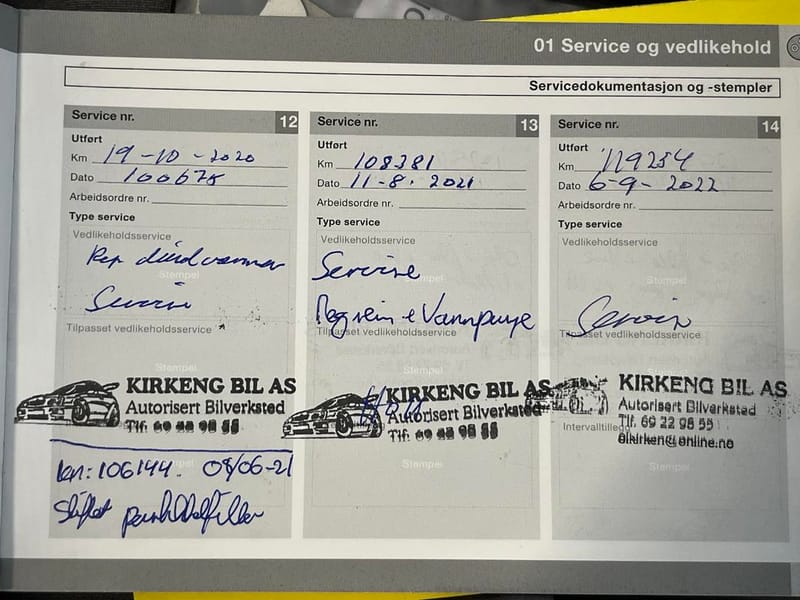 01 Service og vedlikehold
Servicedokumentasjon og -stempler
Service nr. 12
Utført
Km 19-10-2020
Dato 100675
Arbeidsordre nr.
Type service
Vedlikeholdsservice
Rep
Stempel
Service
Tilpasset vedlikeholdsservice
Stempel
KIRKENG BIL AS
Autorisert Bilverksted
Tlf. 69 22 98 55
km: 106144. 08/06-21
Skiftet partikkelfilter
Service nr. 13
Utført
Km 108381
Dato 11-8. 2021
Arbeidsordre nr.
Type service
Vedlikeholdsservice
Service
Stempel
Regreim + Vannpumpe
Tilpasset vedlikeholdsservice
KIRKENG BIL AS
Autorisert Bilverksted
Tlf. 69 22 98 55
Stempel
Service nr. 14
Utført
Km 119254
Dato 6-9-2022
Arbeidsordre nr.
Type service
Vedlikeholdsservice
Stempel
Service
Tilpasset vedlikeholdsservice
Stempel
KIRKENG BIL AS
Autorisert Bilverksted
Tlf. 69 22 98 55
Intervalltillegg
olkirken@online.no
Stempel